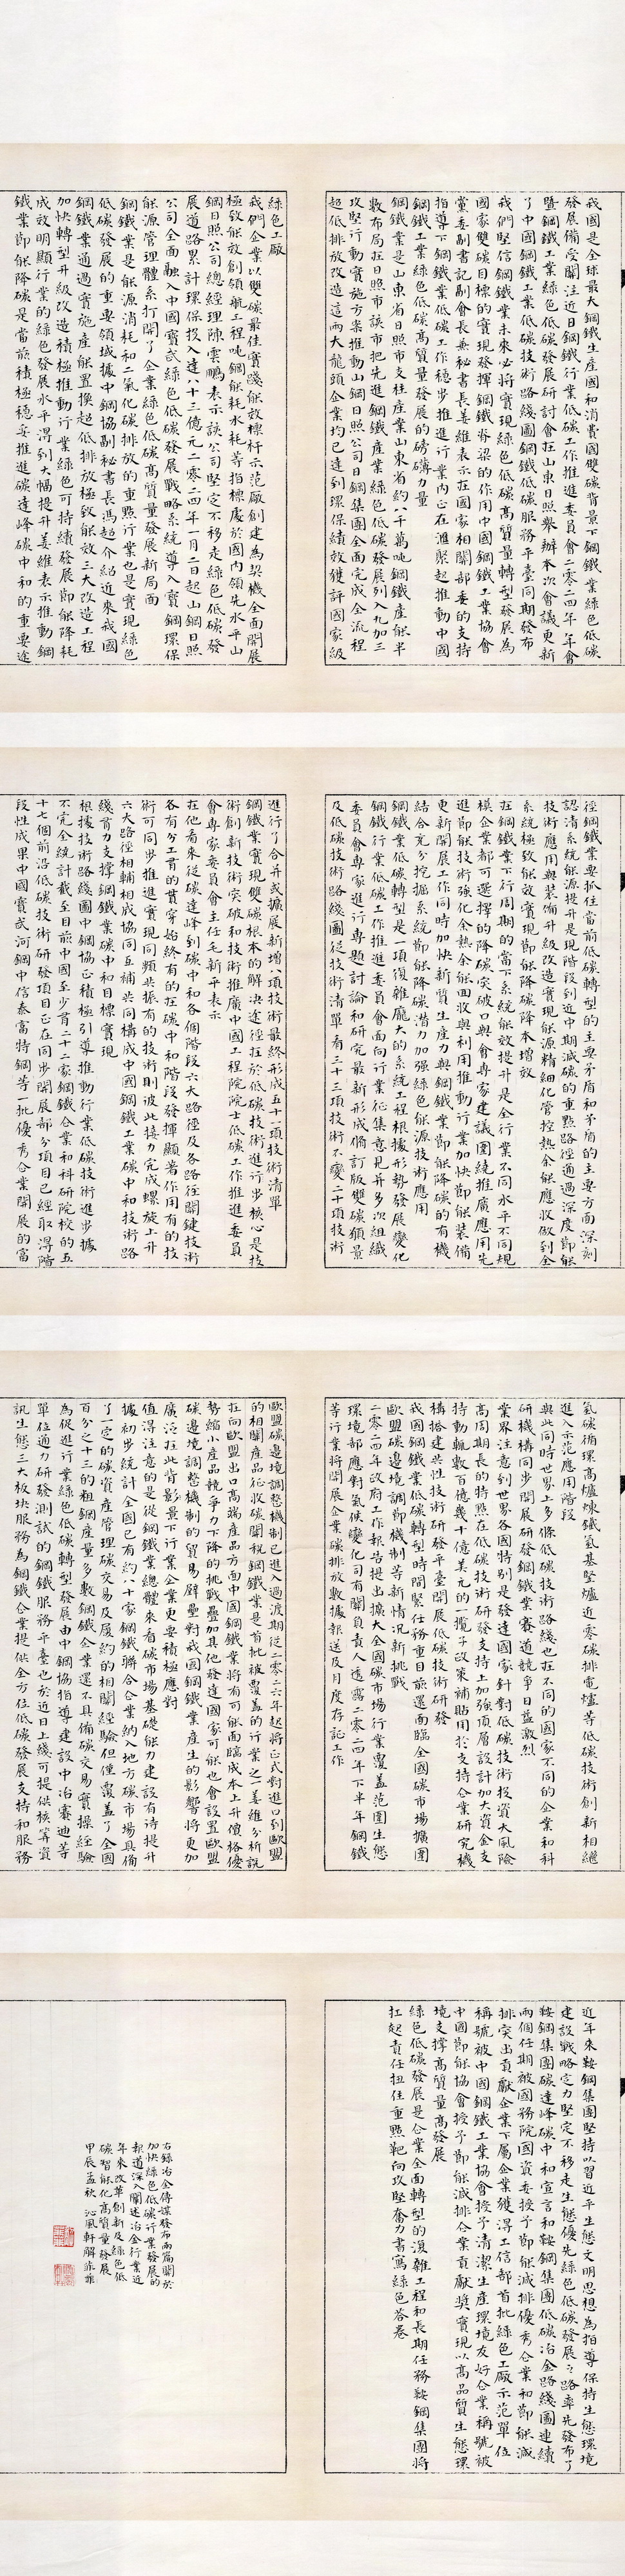 我國是全球最大鋼鐵生産國和消費國雙碳背景下鋼鐵業綠色低碳
發展備受關注近日鋼鐵行業低碳工作推進委員會二零二四年年會
暨鋼鐵工業綠色低碳發展研討會在山東日照舉辦本次會議更新
了中國鋼鐵工業低碳技術路綫圖鋼鐵低碳服務平臺同期發布
我們堅信鋼鐵業未來必將實現綠色低碳高質量轉型發展為
國家雙碳目標的實現發揮鋼鐵脊梁的作用中國鋼鐵工業協會
黨委副書記副會長兼秘書長姜維表示在國家相關部委的支持
指導下鋼鐵行業低碳工作穩步推進行業内正在滙聚起推動中國
鋼鐵工業綠色低碳高質量發展的磅礴力量
鋼鐵業是山東省日照市支柱産業山東省約八千萬噸鋼鐵産能半
數布局在日照市該市把先進鋼鐵産業綠色低碳發展列入九加三
攻堅行動實施方案推動山鋼日照公司日鋼集團全面完成全流程
超低排放改造這兩大龍頭企業均已達到環保績效獲評國家級
綠色工廠
我們企業以雙碳最佳實踐能效標杆示范廠創建為契機全面開展
極致能效創領航工程噸鋼能耗水耗等指標處於國内領先水平山
鋼日照公司總經理陳雲鵬表示該公司堅定不移走綠色低碳發
展道路累計環保投入達八十三億元二零二四年一月二日起山鋼日照
公司全面融入中國寶武綠色低碳發展戰略系統導入寶鋼環保
能源管理體系打開了企業綠色低碳高質量發展新局面
鋼鐵業是能源消耗和二氧化碳排放的重點行業也是實現綠色
低碳發展的重要領域據中鋼協副秘書長馮超介紹近來我國
鋼鐵業通過實施産能置換超低排放極致能效三大改造工程
加快轉型升級改造積極推動行業綠色可持續發展節能降耗
成效明顯行業的綠色發展水平得到大幅提升姜維表示推動鋼
鐵業節能降碳是當前積極穩妥推進碳達峰碳中和的重要途
徑鋼鐵業要抓住當前低碳轉型的主要矛盾和矛盾的主要方面深刻
認清系統能源提升是現階段到近中期減碳的重點路徑通過深度節能
技術應用與裝備升級改造實現能源精細化管控熱余能應收做到全
系統極致能效實現節能降碳降本增效
在鋼鐵業下行周期的當下系統能效提升是全行業不同水平不同規
模企業都可選擇的降碳突破口與會專家建議圍繞推廣應用先
進節能技術強化余熱余能回收與利用推動行業加快節能裝備
更新開展工作同時加快新質生產力與鋼鐵業節能降碳的有機
結合充分挖掘系統節能降碳潛力加強綠色能源技術應用
鋼鐵業低碳轉型是一項復雜龐大的系統工程根據形勢發展變化
鋼鐵行業低碳工作推進委員會面向行業征集意見并多次組織
委員會專家進行專題討論和研究最新形成修訂版雙碳願景
及低碳技術路綫圖從技術清單看三十三項技術不變二十項技術
進行了合并或擴展新增八項技術最終形成五十一項技術清單
鋼鐵業實現雙碳根本的解決途徑在於低碳技術進行步核心是技
術創新技術突破和技術推廣中國工程院院士低碳工作推進委員
會專家委員會主任毛新平表示
在他看來從碳達峰到碳中和各個階段六大路徑及各路徑關鍵技術
各有分工有的貫穿始終有的在碳中和階段發揮顯著作用有的技
術可同步推進實現同頻共振有的技術則彼此接力完成螺旋上升
六大路徑相輔相成協同互補共同構成中國鋼鐵工業碳中和技術路
綫有力支撐鋼鐵業碳中和目標實現
根據技術路綫圖中鋼協正積極引導推動行業低碳技術進步據
不完全統計截至目前中國至少有二十二家鋼鐵企業和科研院校的五
十七個前沿低碳技術研發項目正在同步開展部分項目已經取得階
段性成果中國寶武河鋼中信泰富特鋼等一批優秀企業開展的富
氫碳循環高爐煉鐵氫基堅爐近零碳排電爐等低碳技術創新相繼
進入示范應用階段
與此同時世界上多條低碳技術路綫也在不同的國家不同的企業和科
研機構同步開展研發鋼鐵業賽道競爭日益激烈
業界注意到世界各國特别是發達國家針對低碳技術投資大風險
高周期長的特點在低碳技術研發支持上加強頂層設計加大資金支
持動輒數百億幾十億美元的一攬子政策補貼用於支持企業研究機
構搭建共性技術研發平臺開展低碳技術研發
我國鋼鐵業低碳轉型時間緊任務重目前還面臨全國碳市場擴圍
歐盟碳邊境調節機制等新情況新挑戰
二零二四年政府工作報告提出擴大全國碳市場行業覆蓋范圍生態
環境部應對氣候變化司有關負責人透露二零二四年下半年鋼鐵
等行業將開展企業碳排放數據報送及月度存証工作
歐盟碳邊境調整機制已進入過渡期從二零二六年起將正式對進口到歐盟
的相關産品征收碳關稅鋼鐵業是首批被覆蓋的行業之一姜維分析說
在向歐盟出口高端産品方面中國鋼鐵業將有可能面臨成本上升價格優
勢縮小産品競爭力下降的挑戰疊加其他發達國家可能也會設置歐盟
碳邊境調整機制的貿易壁壘對我國鋼鐵業産生的影響將更加
廣泛在此背影景下行業企業更要積極應對
值得注意的是從鋼鐵業總體來看碳市場基礎能力建設有待提升
據初步統計全國已有約八十家鋼鐵聯合企業納入地方碳市場具備
了一定的碳資産管理碳交易及履約的相關經驗但僅覆蓋了全國
百分之十三的粗鋼産量多數鋼鐵企業還不具備碳交易實操經驗
為促進行業綠色低碳轉型發展由中鋼協指導建設中冶賽迪等
單位通力研發測試的鋼鐵服務平臺也於近日上綫可提供核算資
訊生態三大板塊服務為鋼鐵企業提供全方位低碳發展支持和服務
近年來鞍鋼集團堅持以習近平生態文明思想為指導保持生態環境
建設戰略定力堅定不移走生態優先綠色低碳發展之路率先發布了
鞍鋼集團碳達峰碳中和宣言和鞍鋼集團低碳冶金路綫圖連續
兩個任期被國務院國資委授予節能減排優秀企業和節能減
排突出貢獻企業下屬企業獲得工信部首批綠色工廠示范單位
稱號被中國鋼鐵工業協會授予清潔生産環境友好企業稱號被
中國節能協會授予節能減排企業貢獻獎實現以高品質生態環
境支撐高質量高發展
綠色低碳發展是企業全面轉型的復雜工程和長期任務鞍鋼集團將
扛起責任扭住重點靶向攻堅奮力書寫綠色答卷
右録冶金傳媒發布兩篇關於
加快綠色低碳行業發展的
報道深入闡述冶金行業近
年來改革創新及綠色低
碳智能化高質量發展
甲辰孟秋 沁風軒解菲菲